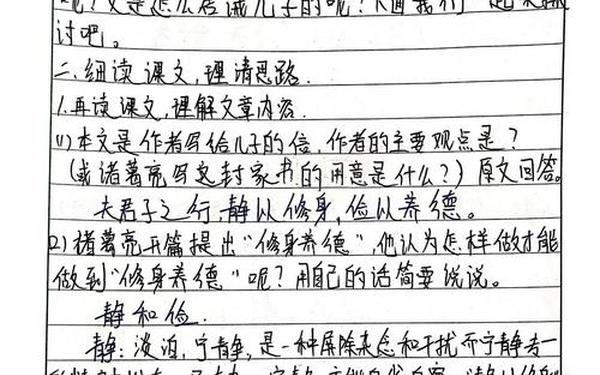 呢?又是怎么告诫儿子的呢?下面我们一起来探
讨吧。
二、细读课文,理清思路.
1.再读课文,理解文章内容.
(1)本文是作者写给儿子的信,作者的主要观点是?
(或诸葛亮写这封家书的用意是什么?)原文回答。
夫君子之行,静以修身,俭以养德。
(2)诸葛亮开篇提出“修身养德”,他认为怎样做才能
做到“修身养德”呢?用自己的话简要说说。
静和俭.
静:淡泊,宁静,是一种屏除杂念和干扰而宁静专一